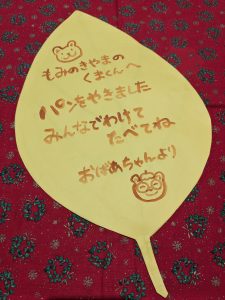 もみのきやまの
くまくんへ
パンをやきました
みんなでわけて
たべてね
おばあちゃんより